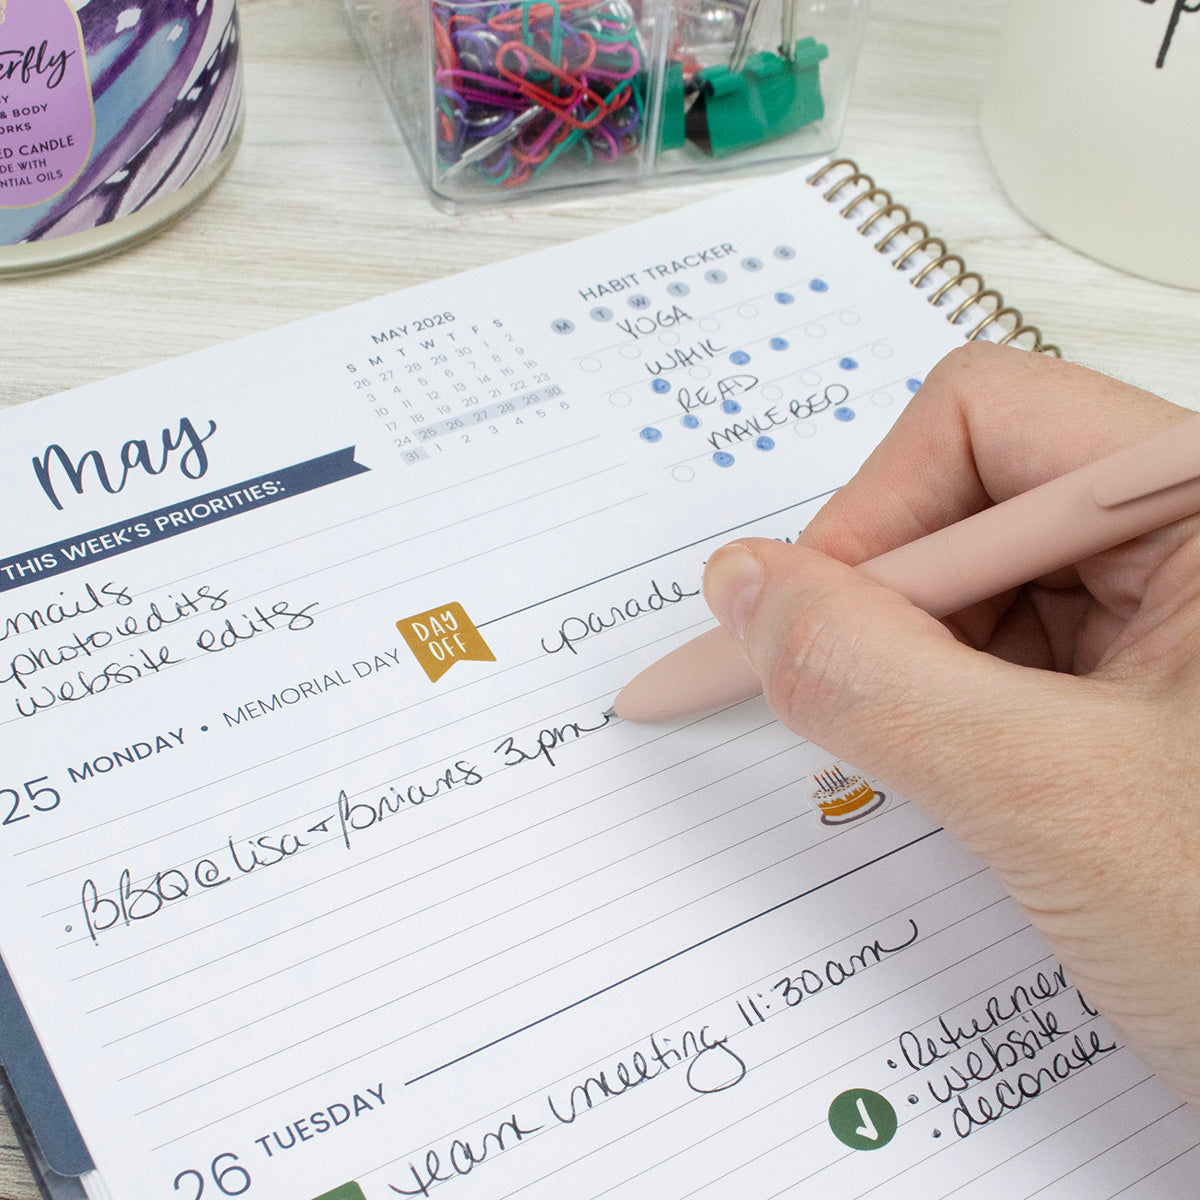 erfly
& BODY
ORKS
ED CANDLE
DE WITH
NTIAL OILS
MAY 2026
S M T W T F S
26 27 28 29 30 1 2
3 4 5 6 7 8 9
10 11 12 13 14 15 16
17 18 19 20 21 22 23
24 25 26 27 28 29 30
31 1 2 3 4 5 6
HABIT TRACKER
M T W T F S S
YOGA
WALK
READ
MAKE BED
May
THIS WEEK'S PRIORITIES:
emails
photo edits
website edits
25 MONDAY • MEMORIAL DAY
DAY OFF
parade
• BBQ @ lisa + Brians 3pm
26 TUESDAY
team meeting 11:30am
• website
• decorate